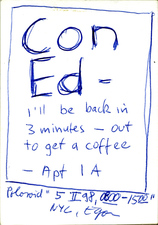 Con
Ed -
I'll be back in
3 minutes - out
to get a coffee
- Apt 1A
Poloroid" 5 II 98,
NYC,